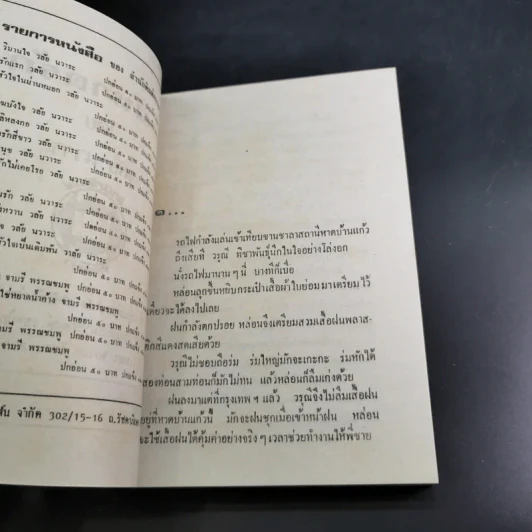 รายการหนังสือ ของ สำนักพิมพ์
วิมานใจ วลัย นวาระ
ปกอ่อน ๕๐ บาท ปกแข็ง
รักแรก วลัย นวาระ
ปกอ่อน ๕๐ บาท
หัวใจในม่านหมอก วลัย นวาระ
ปกอ่อน ๕๐ บาท
วลัย นวาระ
ปกอ่อน ๕๐ บาท
วลัย นวาระ
ปกอ่อน ๕๐ บาท
รักสีขาว วลัย นวาระ
ปกอ่อน ๕๐ บาท
วลัย นวาระ
ปกอ่อน ๕๐ บาท
รักไม่เคยโรย วลัย นวาระ
ปกอ่อน ๕๐ บาท
วลัย นวาระ
ปกอ่อน ๕๐ บาท
หวาน วลัย นวาระ
ปกอ่อน ๕๐ บาท
วลัย นวาระ
ปกอ่อน ๕๐ บาท
หัวใจเป็นเดิมพัน วลัย นวาระ
ปกอ่อน ๕๐ บาท
จามรี พรรณชมพู
ปกอ่อน ๕๐ บาท ปกแข็ง
ใช่หยาดน้ำค้าง จามรี พรรณชมพู
ปกอ่อน ๕๐ บาท ปกแข็ง
จามรี พรรณชมพู
ปกอ่อน ๕๐ บาท ปกแข็ง
จามรี พรรณชมพู
ปกอ่อน ๕๐ บาท ปกแข็ง
จำกัด 302/15-16 ถ.รัชดาภิเษก
๑...
รถไฟกำลังแล่นเข้าเทียบชานชาลาสถานีหาดบ้านแก้ว
ถึงเสียที วรุณี ทิชาพันธุ์นึกในใจอย่างโล่งอก
นั่งรถไฟมานาน ๆ นี่ บางทีก็เบื่อ
หล่อนลุกขึ้นหยิบกระเป๋าเสื้อผ้าใบย่อมมาเตรียมไว้
เดี๋ยวจะได้ลงไปเลย
ฝนกำลังตกปรอย หล่อนจึงเตรียมสวมเสื้อฝนพลาส-
ติกสีแดงสดเสียด้วย
วรุณีไม่ชอบถือร่ม ร่มใหญ่มักจะเกะกะ ร่มพักได้
สองท่อนสามท่อนก็มักไม่ทน แล้วหล่อนก็ลืมเก่งด้วย
ฝนลงมาแต่ที่กรุงเทพ ฯ แล้ว วรุณีจึงไม่ลืมเสื้อฝน
อยู่ที่หาดบ้านแก้วนี้ มักจะฝนชุกเมื่อเข้าหน้าฝน หล่อน
จะใช้เสื้อฝนได้คุ้มค่าอย่างจริง ๆ เวลาช่วยทำงานให้พี่ชาย